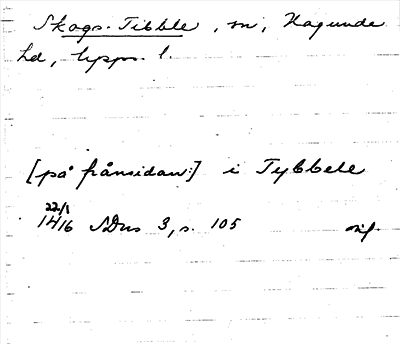 Skogs-Tibble, sn, Hagunda
hd, Upps. l.
[på frånsidan:] i Tybbele
22/1
1416 SDns 3, s. 105